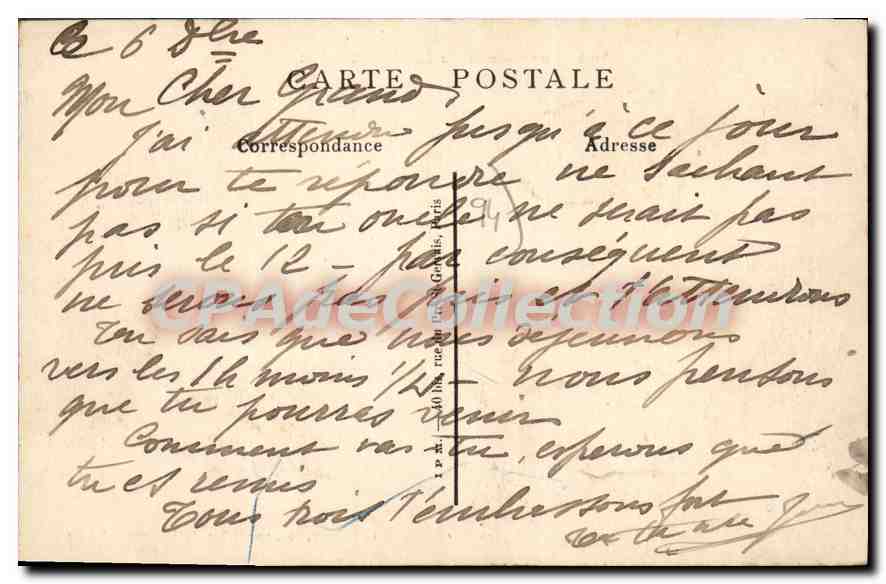 Ce 6 Dbre
CARTE POSTALE
Mon Cher Grand,
J'ai attendu jusqu'à ce jour
Correspondance
Adresse
pour te répondre ne sachant
pas si ton oncle ne serait pas
94
pris le 12 - par conséquent
ne serons pas pris et t'attendrons
CPAdeCollection
Tu sais que nous déjeunons
vers les 1h moins 1/4 - nous pensons
que tu pourras venir
Comment vas-tu, esperons que
tu es remis
Tous trois t'embrassons fort
Ta tante
I P M. — 40 bis, rue du Pré-St-Gervais, Paris